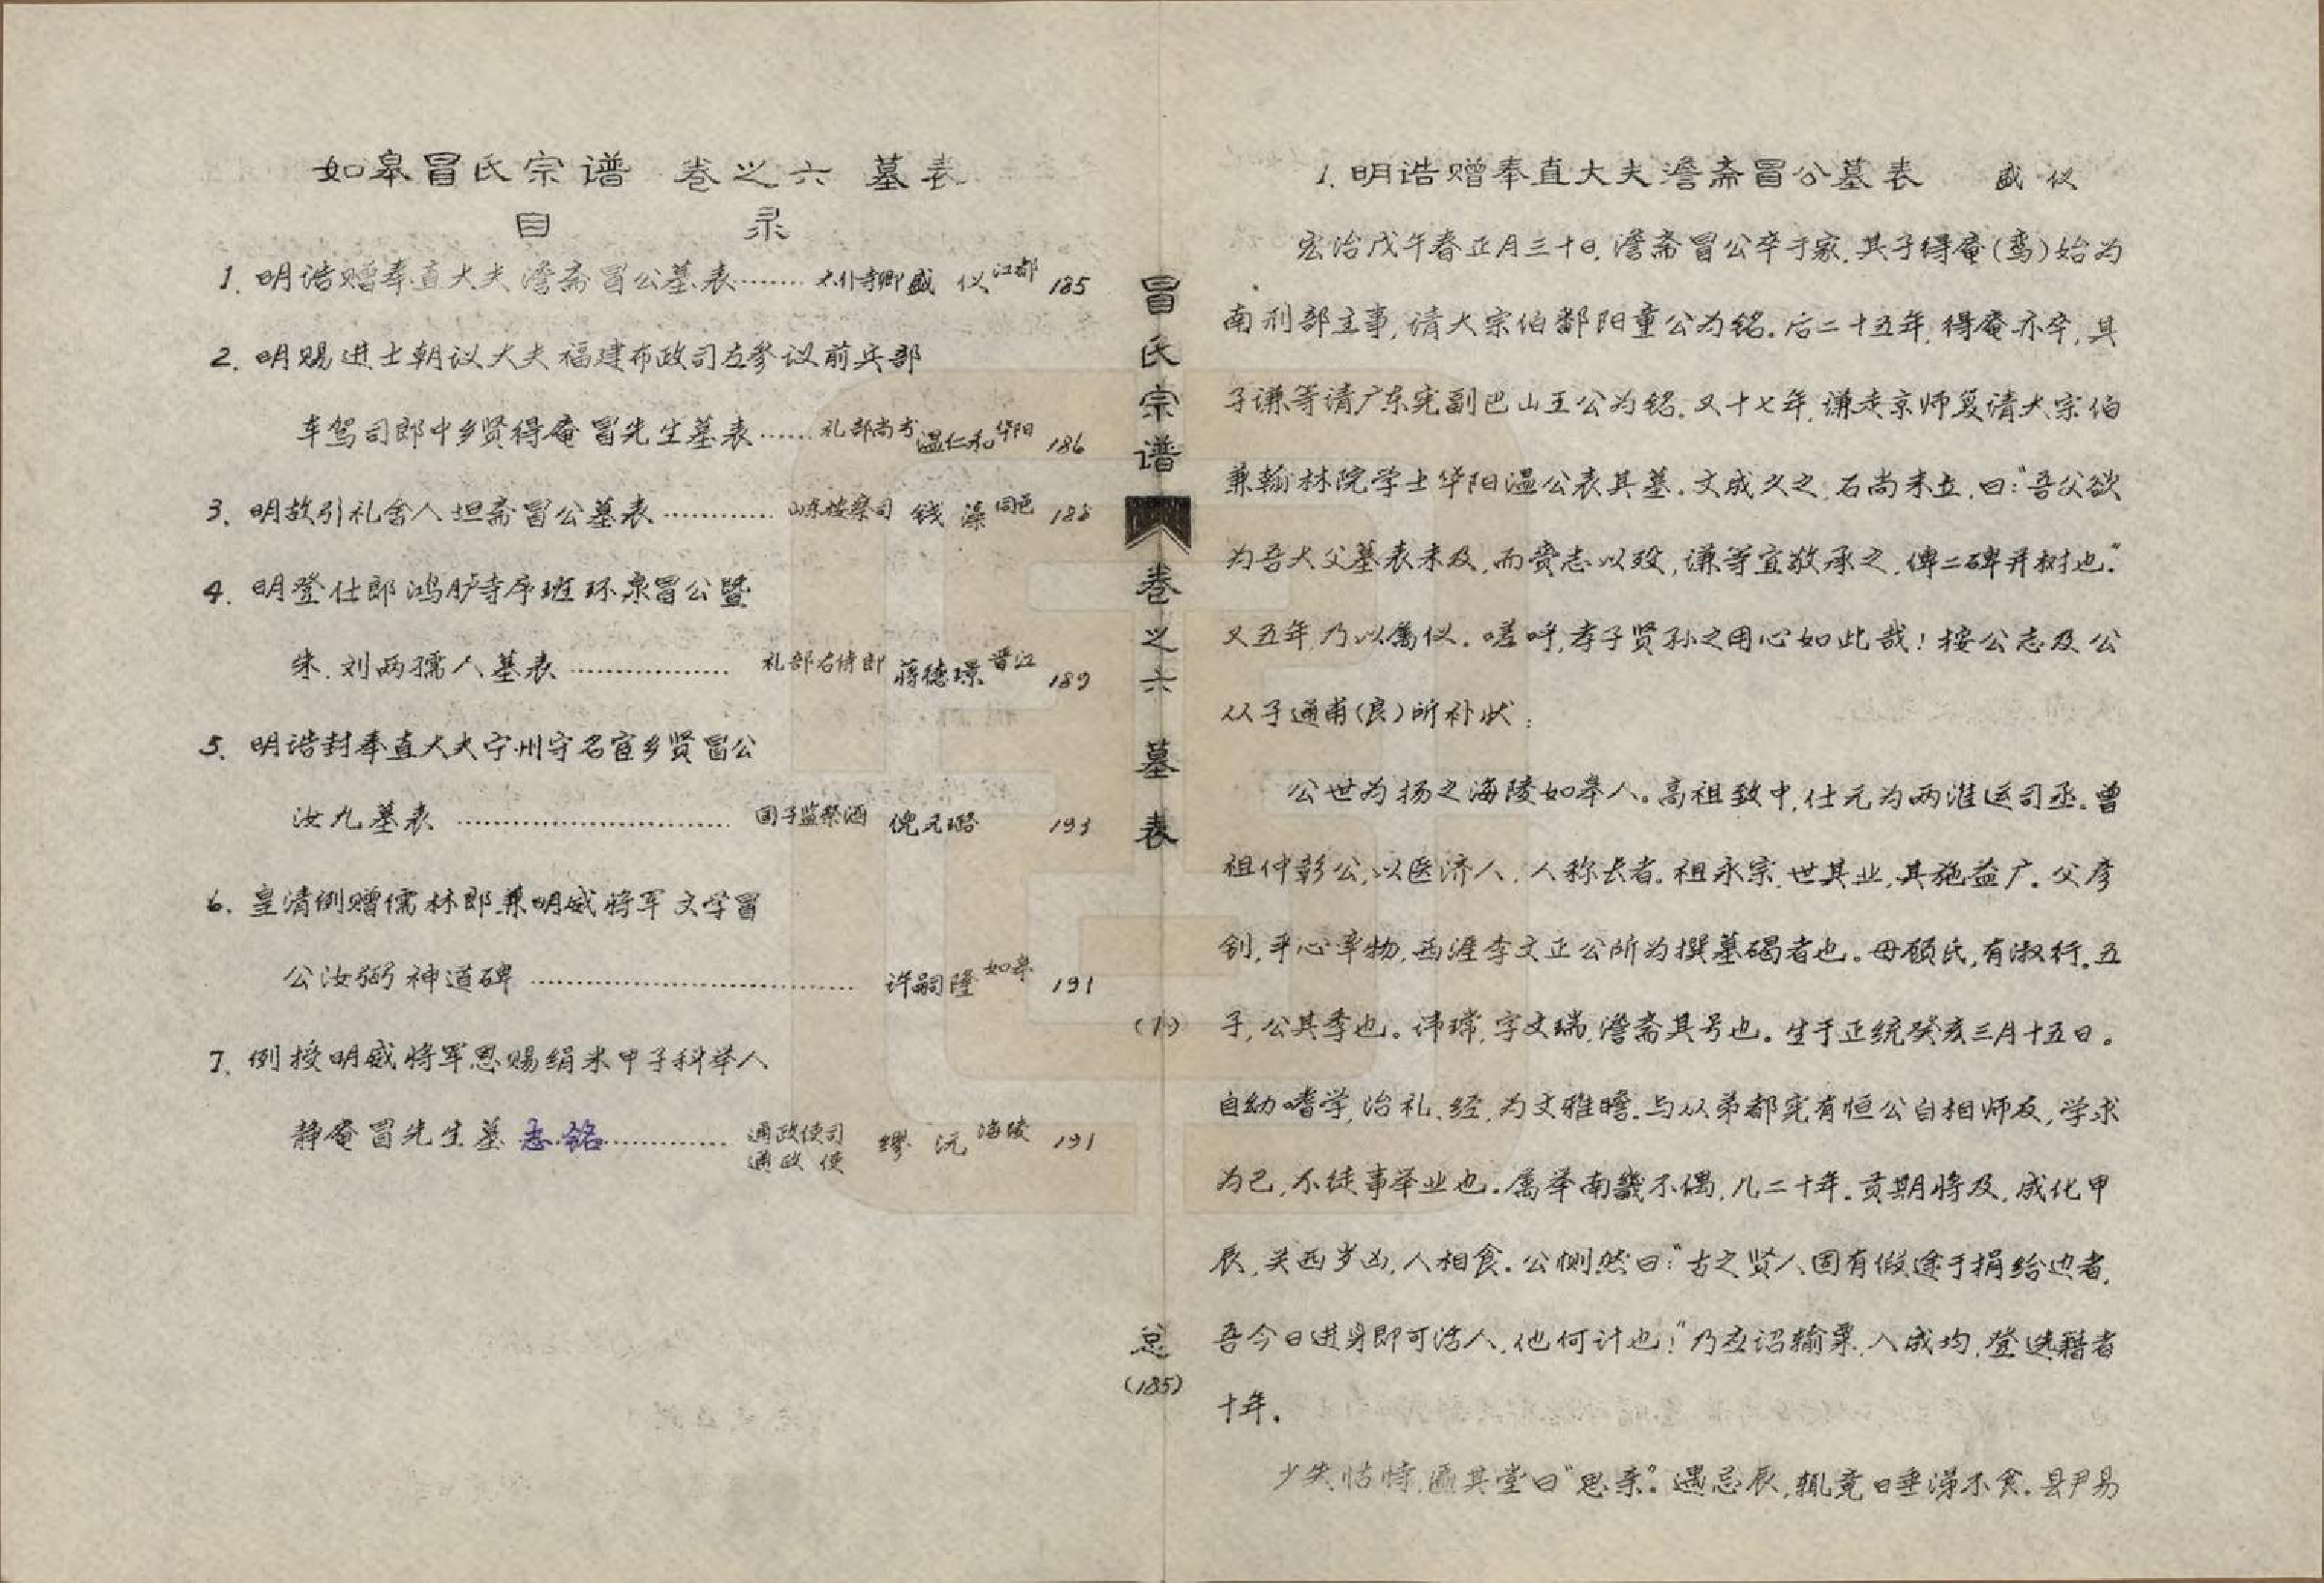 如皋冒氏宗谱 卷之六 墓表
目 录
1. 明诰赠奉直大夫澹斋冒公墓表········太仆寺卿 盛 仪 江都 185
2. 明赐进士朝议大夫福建布政司左参议前兵部
车驾司郎中乡贤得庵冒先生墓表······礼部尚书 温仁和 华阳 186
3. 明故引礼舍人坦斋冒公墓表············山东按察司 钱 藻 同邑 188
4. 明登仕郎鸿胪寺序班环泉冒公暨
朱.刘两孺人墓表················礼部右侍郎 蒋德璟 晋江 189
5. 明诰封奉直大夫宁州守名宦乡贤冒公
汝九墓表···························国子监祭酒 倪元璐 193
6. 皇清例赠儒林郎兼明威将军文学冒
公汝弼神道碑································许嗣隆 如皋 191
7. 例授明威将军恩赐绢米甲子科举人
静庵冒先生墓志铭············通政使司通政使 缪 沅 海陵 191
冒氏宗谱 卷之六 墓表 (1) 总(185)
1. 明诰赠奉直大夫澹斋冒公墓表 盛 仪
宏治戊午春正月三十日,澹斋冒公卒于家.其子得庵(鸾)始为
南刑部主事,请大宗伯鄱阳童公为铭.后二十五年,得庵亦卒,其
子谦等请广东宪副巴山王公为铭.又十七年,谦走京师复请大宗伯
兼翰林院学士华阳温公表其墓.文成久之,石尚未立,曰:“吾父欲
为吾大父墓表未及,而赍志以殁,谦等宜敬承之,俾二碑并树也.”
又五年,乃以属仪.嗟呼,孝子贤孙之用心如此哉!按公志及公
从子通甫(良)所补状:
公世为扬之海陵如皋人。高祖致中,仕元为两淮运司丞.曾
祖仲彰公,以医济人,人称长者.祖永宗,世其业,其施益广.父彦
钊,平心率物,西涯李文正公所为撰墓碣者也。母顾氏,有淑行.五
子,公其季也。讳璨,字文瑞,澹斋其号也。生于正统癸亥三月十五日。
自幼嗜学,治礼、经,为文雅赡.与从弟都宪有恒公自相师友,学求
为己,不徒事举业也.属举南畿不偶,几二十年.贡期将及,成化甲
辰,关西岁凶,人相食.公恻然曰:“古之贤人固有假途于捐给边者,
吾今日进身即可活人,他何计也!”乃应诏输粟,入成均,登选籍者
十年.
少失怙恃,匾其堂曰“思亲”。遇忌辰,辄竟日垂涕不食.县尹易